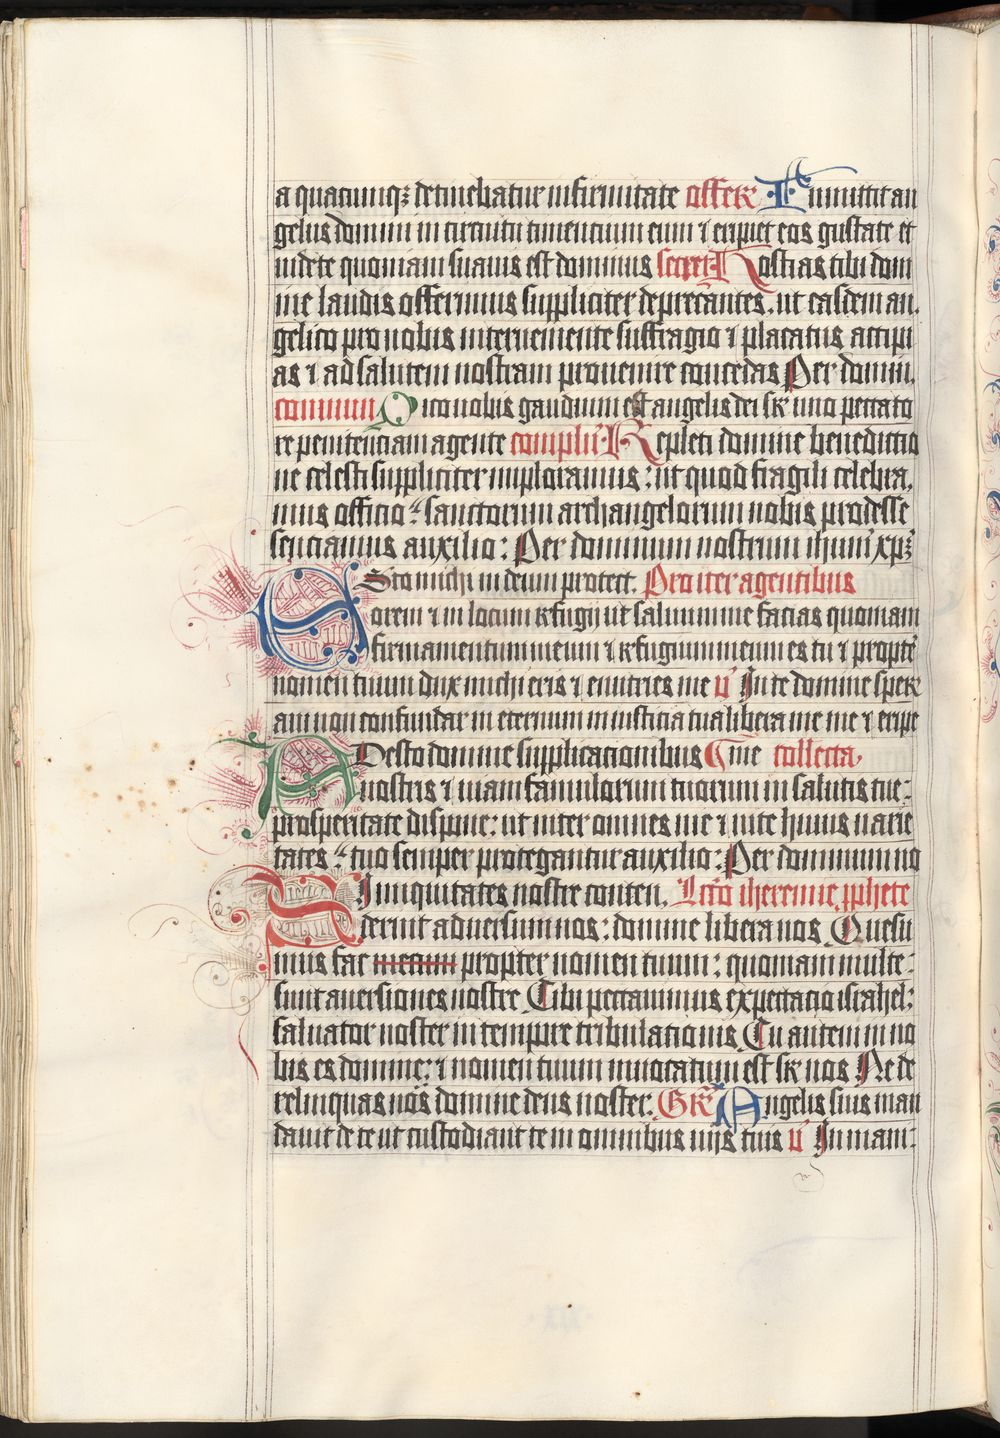 a quacunq; detinebatur infirmitate offer. Inmittit an
gelus domini in circuitu timencium eum ⁊ eripiet eos gustate et
uidete quoniam suauis est dominus secret Hostias tibi domi
ne laudis offerimus suppliciter deprecantes. ut easdem an,
gelico pro nobis interueniente suffragio ⁊ placatus accipi
as ⁊ ad salutem nostram prouenire concedas Per domin.
commun Dico uobis gaudium est angelis dei sr uno peccato
re penitenciam agente complē. Repleti domine benedictio
ne celesti suppliciter imploramus: ut quod fragili celebra,
mus officio: sanctorum archangelorum nobis prodesse
senciamus auxilio: Per dominum nostrum ihum xp̄
Esto michi in deum protect. Pro iter agentibus
orem ⁊ in locum refugij ut saluum me facias quoniam
firmamentum meum ⁊ refugium meum es tu ⁊ propter
nomen tuum dux michi eris ⁊ enutries me v̄ In te domine sper
aui non confundar in eternum in iusticia tua libera me me ⁊ eripe
Adesto domine supplicacionibus Sine collecta
nostris ⁊ uiam famulorum tuorum in salutis tue:
prosperitate dispone: ut inter omnes uie ⁊ uite huius uarie
tates: tuo semper protegantur auxilio: Per dominum no
Si iniquitates nostre conten. Lectō iheremie pphete
derint aduersum nos: domine libera nos Quesu
mus fac mecum propter nomen tuum: quoniam multe:
sunt auersiones nostre Tibi peccauimus expectacio israhel:
saluator noster in tempore tribulacionis Tu autem in no
bis es domine: ⁊ nomen tuum inuocatum est sr nos Ne de
relinquas nos domine deus noster. Gr̄ Angelis suis man
dauit de te ut custodiant te in omnibus uijs tuis v̄ In mani: